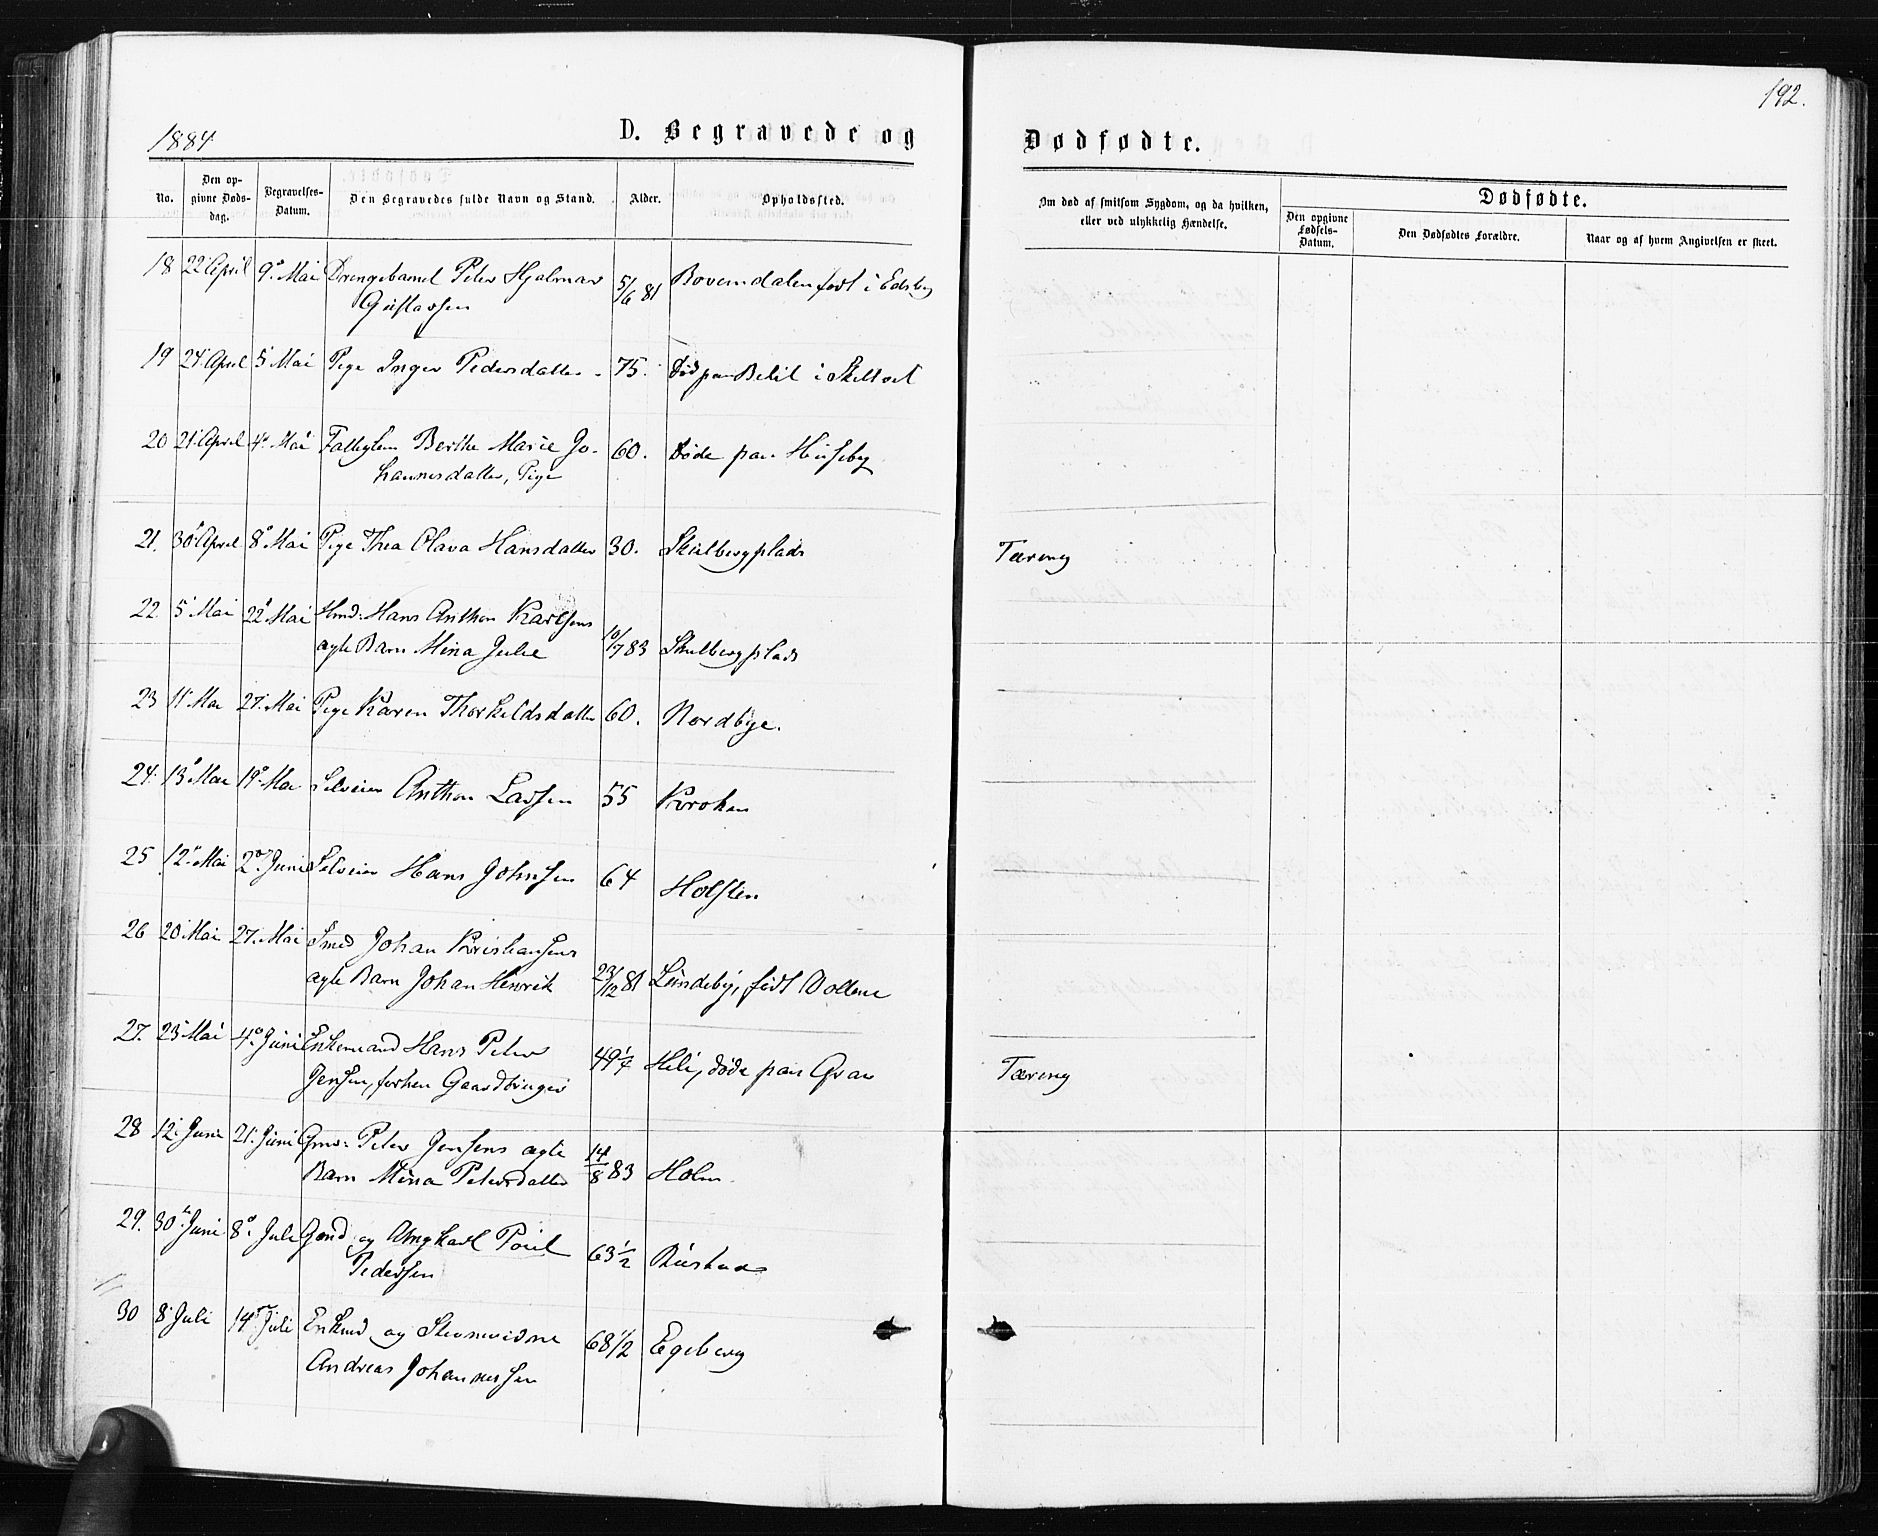 192.
1884
D. Begravede og
Dødfødte.
No.
Den opgivne Dødsdag.
Begravelses-Datum.
Den Begravedes fulde Navn og Stand.
Alder.
Opholdssted.
Om død af smitsom Sygdom, og da hvilken, eller ved ulykkelig Hændelse.
Dødfødte.
Den opgivne Fødsels-Datum.
Den Dødfødtes Forældre.
Naar og af hvem Angivelsen er skeet.
18 22 April 9° Mai Drengebarnet Peter Hjalmar 5/6 81 født i Edsberg
Gustavsen
19 24 April 5 Mai Pige Inger Pedersdatter 75. Død paa i Skiltvet
20 21 April 4 Mai Fattiglem Berthe Marie Jo- 60. Døde paa Huseby
hannesdatter, Pige
21. 30 April 8° Mai Pige Thea Olava Hansdatter 30. Skulbergplads Tæring
22 5 Mai 22 Mai Hmd: Hans Anthon Karlsens
ægte Barn Mina Julie 10/7 83 Skulbergplads
23 11 Mai 27. Mai Pige Karen Thorkildsdatter 60. Nordbye.
24. 13 Mai 19° Mai Selveier Anthon Larsen 55 Krohen
25 12 Mai 2 Juni Selveier Hans Johnsen 64 Holsten
26 20 Mai 27. Mai Smed Johan Kristiansens
ægte Barn Johan Henrik 23/12 81 Lundeby, født Vollene
27. 23 Mai 4° Juni Enkemand Hans Peter 49 1/4 Heli, døde paa Grav Tæring
Jensen, forhen Gaardbruger
28 12. Juni 21. Juni Gmd: Peter Jensens ægte
Barn Mina Petersdatter 14/8 83 Holm.
29. 30 Juni 8° Juli Gmd og Poul 63 1/2 Rustad
Pedersen
30 8 Juli 14 Juli Enkmd og 68 1/2 Egeberg
Andreas Johannessen